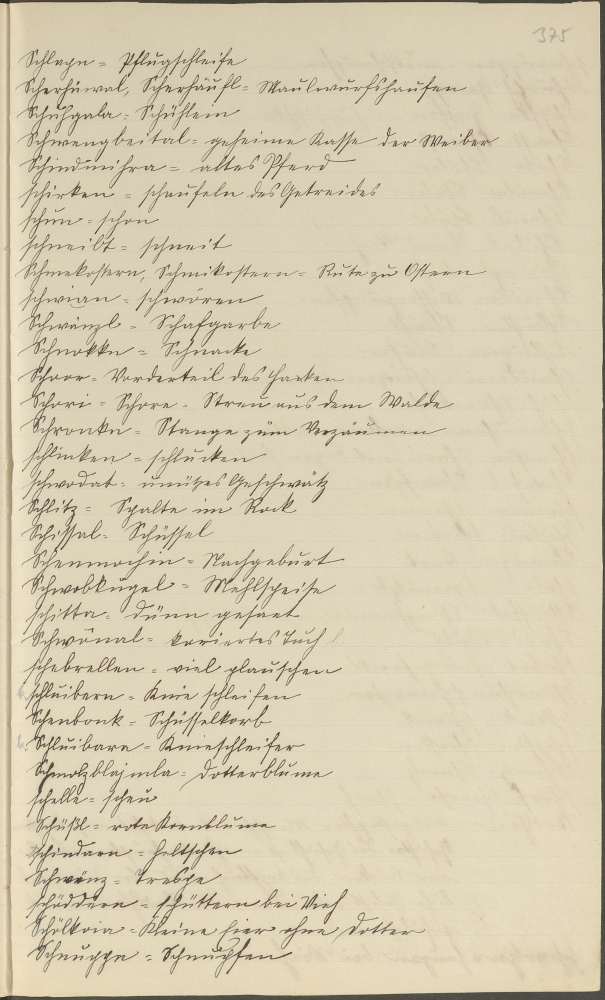 375
Schlapn = Pflugschleife
Scherhüwal, Scherhäufl = Maulwurfshaufen
Schuhgala = Schühlein
Schwengbeital = geheime Kasse der Weiber
Schindmihra = altes Pferd
schirken = schaufeln des Getreides
schun = schon
schneibt = schneit
Schmekostern, Schmikostern = Rute zu Ostern
schwian = schwören
Schwänzl = Schafgarbe
Schnokkn = Schnacke
Schoor = Vorderteil des Harken
Schori = Schore = Streu aus dem Walde
Schronkn = Stange zum Verzäunen
schlinken = schlucken
schwodat = unnützes Geschwätz
Schlitz = Spalte im Rock
Schissal = Schüssel
Schenmochin = Nachgeburt
Schwobkugel = Mehlspeise
schitta = dünn gesaet
Schwönal = kariertes Tuch
schebrellen = viel plauschen
schluibern = Knie schleifen
Schenbonk = Schüsselkorb
Schluibara = Knieschleifer
Schmolzblajmla = Dotterblume
schelle = scheu
Schüßl = rote Kornblume
schindarn =
Schwänz = Trespe
schöddern = schüttern bei Vieh
Schölkoia = Kleine Eier ohne Dotter
Schnuppn = Schnupfen